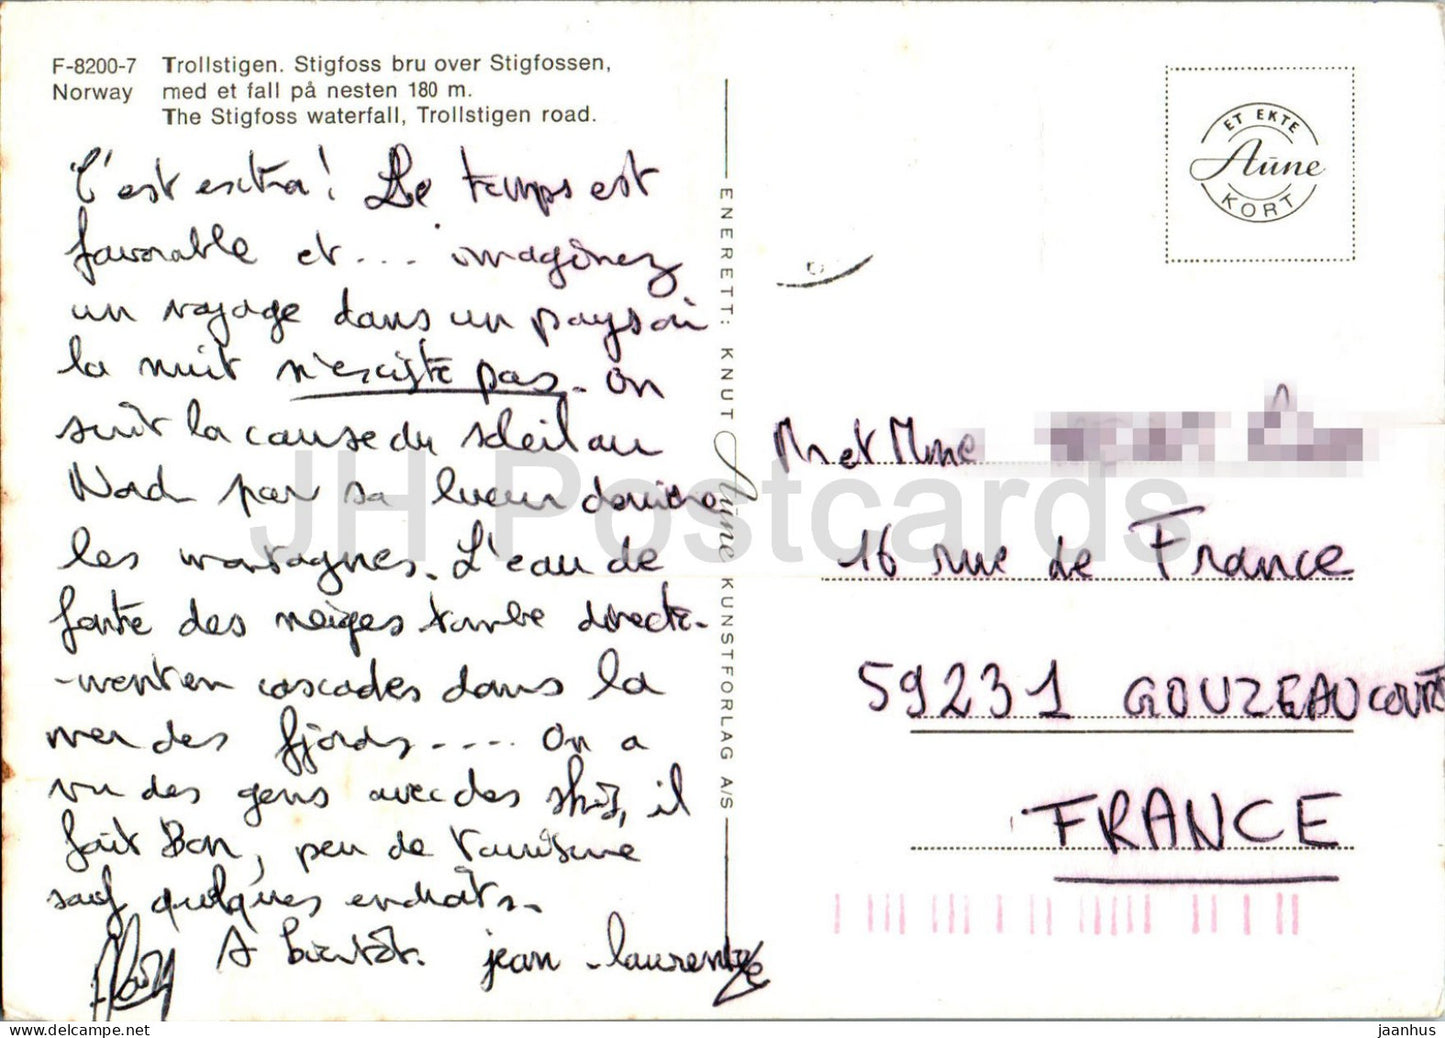 F-8200-7 Trollstigen. Stigfoss bru over Stigfossen,
Norway med et fall på nesten 180 m.
The Stigfoss waterfall, Trollstigen road.
C'est extra! Le temps est
favorable et... imaginez
un voyage dans un pays où
la nuit n'existe pas. On
suit la cause du soleil au
Nord par sa lueur derrière
les montagnes. L'eau de
fonte des neiges tombe directe-
-ment en cascades dans la
mer des fjords.... On a
vu des gens avec des skis, il
fait Bon, peu de tourisme
sauf quelques endroits.
A bientôt. jean-laurent
ENERETT: KNUT Aūne KUNSTFORLAG A/S
ET EKTE
Aūne
KORT
Mr et Mme
16 rue de France
59231 GOUZEAUCOURT
FRANCE
JH Postcards
www.delcampe.net
jaanhus